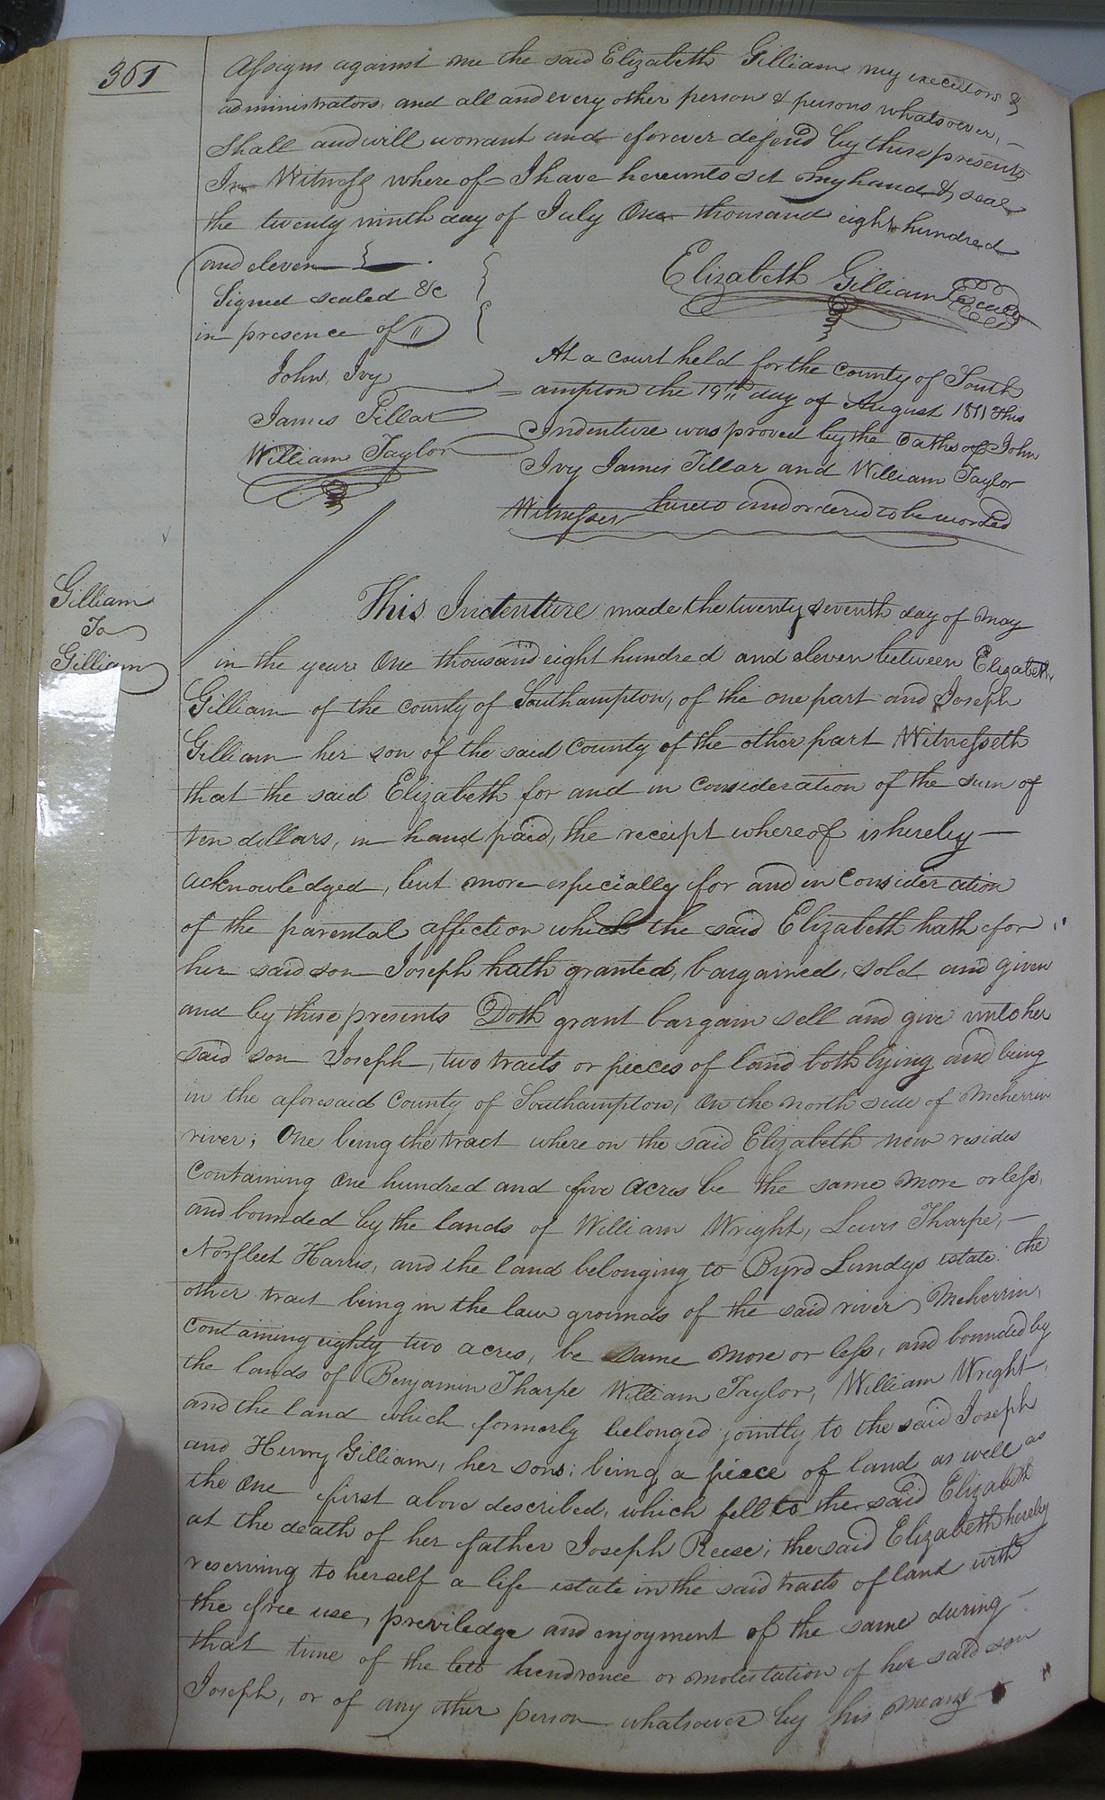 301
Assigns against me the said Elizabeth Gilliam my executors &
administrators, and all and every other person & persons whatsoever,
Shall and will warrant and forever defend by these presents
In Witness where of I have hereunto set my hand & seal
the twenty ninth day of July One thousand eight hundred
and eleven
Elizabeth Gilliam
Signed sealed &c
in presence of
John, Ivy
James Tillar
William Taylor
At a court held for the county of South
ampton the 19th day of August 1811 this
Indenture was proved by the oaths of John
Ivy James Tillar and William Taylor
Witnesses hereto and ordered to be recorded
Gilliam
To
Gilliam
This Indenture made the twenty seventh day of May
in the year One thousand eight hundred and eleven between Elizabeth
Gilliam of the county of Southampton, of the one part and Joseph
Gilliam her son of the said County of the other part Witnesseth
that the said Elizabeth for and in consideration of the sum of
ten dollars, in hand paid, the receipt whereof is hereby
acknowledged, but more especially for and in consideration
of the parental affection which the said Elizabeth hath for
her said son Joseph hath granted, bargained, sold and given
and by these presents Doth grant bargain sell and give unto her
said son Joseph, two tracts or pieces of land both lying and being
in the aforesaid County of Southampton, On the north side of Meherrin
river; One being the tract where on the said Elizabeth now resides
Containing One hundred and five acres be the same more or less,
and bounded by the lands of William Wright, Lewis Tharpe,
Norfleet Harris, and the land belonging to Byrd Lundys estate: the
other tract being in the law grounds of the said river Meherrin,
Containing eighty two acres, be same more or less, and bounded by
the lands of Benjamin Tharpe William Taylor, William Wright,
and the land which formerly belonged jointly to the said Joseph
and Henry Gilliam, her sons; being a piece of land as well as
the One first above described, which fell to the said Elizabeth
at the death of her father Joseph Reese; the said Elizabeth hereby
reserving to herself a life estate in the said tracts of land with
the free use, previledge and enjoyment of the same during
that time of the lett hendrence or molestation of her said son
Joseph, or of any other person whatsoever by his means